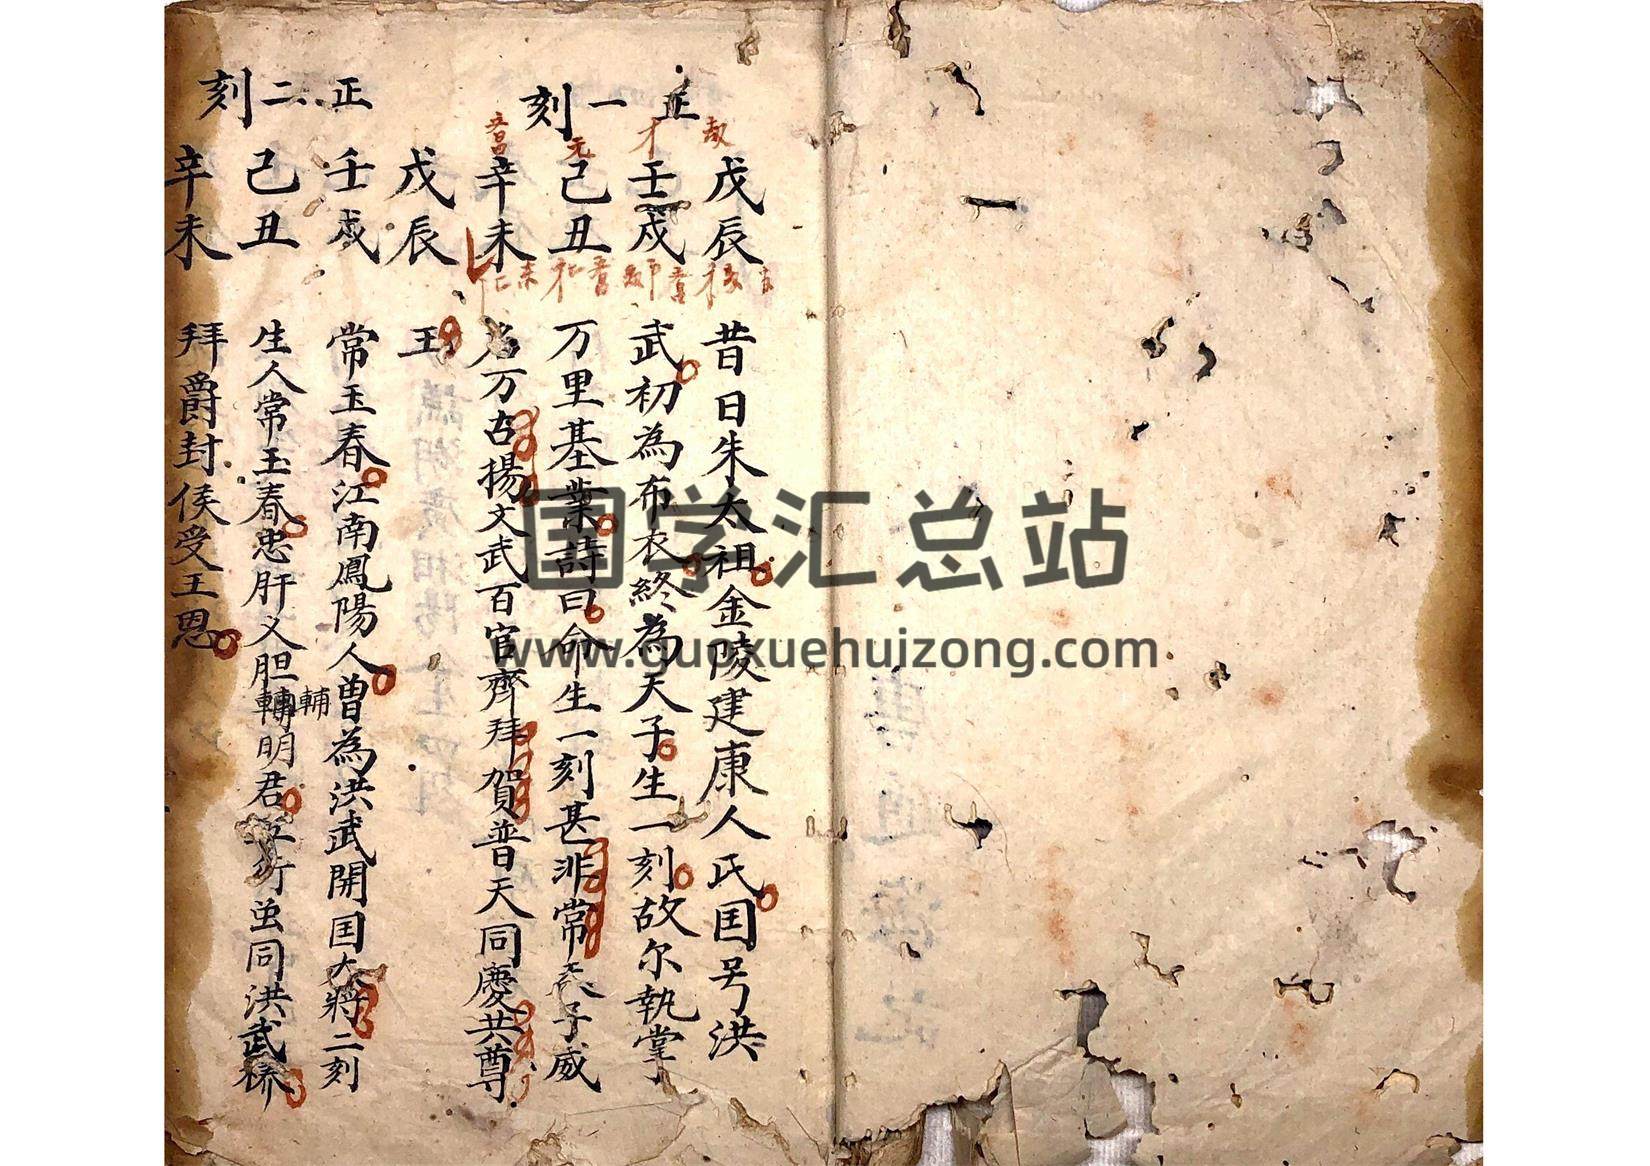 正一刻
戊辰
壬戌
己丑
辛未
劫
才
元
昔日朱太祖金陵建康人氏国号洪
武初為布衣終為天子生一刻故尔執掌
万里基業詩曰命生一刻甚非常天子威
名万古揚文武百官齊拜賀普天同慶共尊
王
正二刻
戊辰
壬戌
己丑
辛未
常玉春江南鳳陽人曾為洪武開国大將二刻
生人常玉春忠肝义胆轉輔明君行虽同洪武
拜爵封侯受王恩
国学汇总站
www.guoxuehuizong.com